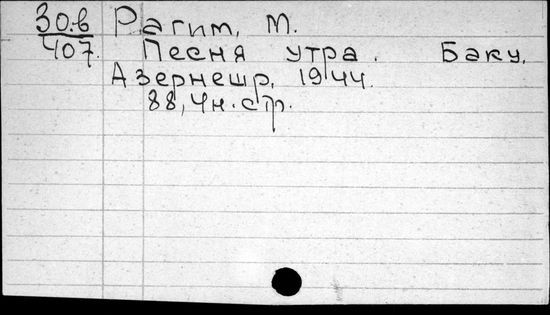 30.в Рагим, М.
407. Песня утра. Баку,
Азернешр, 1944.
88, 4н. стр.